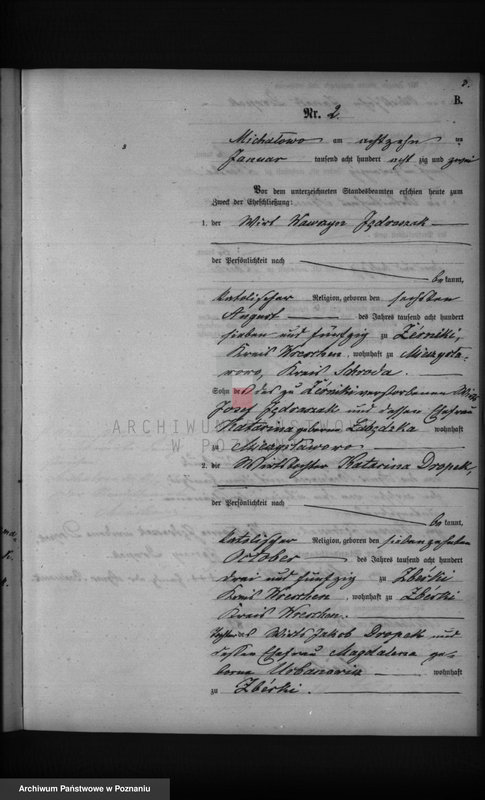 B.
Nr. 2.
Michałowo am achtzehn ten
Januar tausend acht hundert acht zig und zwei
Vor dem unterzeichneten Standesbeamten erschien heute zum
Zweck der Eheschließung:
1. der Wirt Wawrzyn Jędraszak
der Persönlichkeit nach
be kannt,
katolischer Religion, geboren den sechsten
August des Jahres tausend acht hundert
sieben und fünfzig zu Zierniki,
Kreis Wreschen, wohnhaft zu
Kreis Schroda.
Sohn des zu Zierniki verstorbenen Wirts
Josef Jędraszak und dessen Ehefrau
Katarina geborene wohnhaft
zu
2. die Wirtstochter Katarina Dropek,
der Persönlichkeit nach
be kannt,
katolischer Religion, geboren den siebenzehnten
October des Jahres tausend acht hundert
drei und fünfzig zu Zberki
Kreis Wreschen, wohnhaft zu Zberki
Kreis Wreschen.
Tochter des Wirts Jakob Dropek und
dessen Ehefrau Magdalena ge-
borene Urbanowicz wohnhaft
zu Zberki.
ARCHIWUM PAŃSTWOWE
W POZNANIU
Archiwum Państwowe w Poznaniu